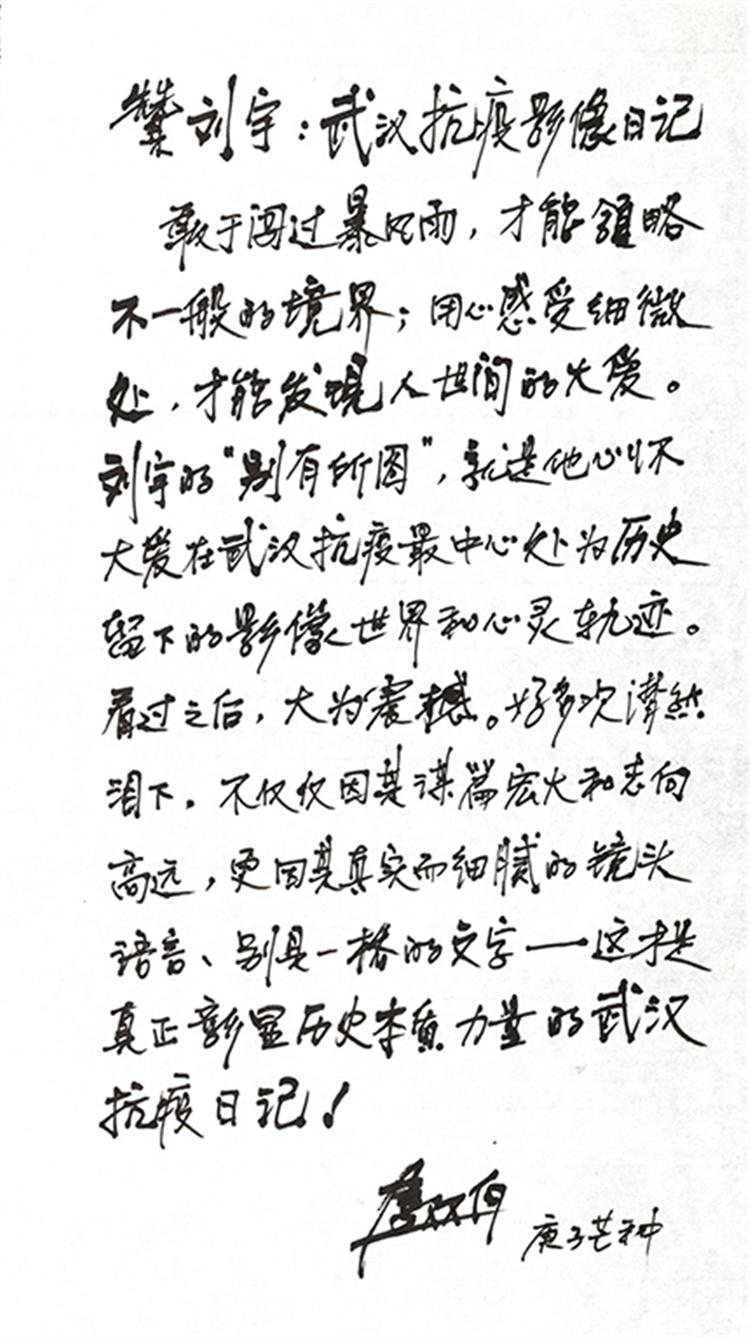 赞刘宇：武汉抗疫影像日记
敢于闯过暴风雨，才能领略
不一般的境界；用心感受细微
处，才能发现人世间的大爱。
刘宇的“别有所图”，就是他心怀
大爱在武汉抗疫最中心处为历史
留下的影像世界和心灵轨迹。
看过之后，大为震撼。好多次潸然
泪下，不仅仅因其谋篇宏大和志向
高远，更因其真实而细腻的镜头
语言、别具一格的文字——这才是
真正彰显历史本质力量的武汉
抗疫日记！
庚子芒种